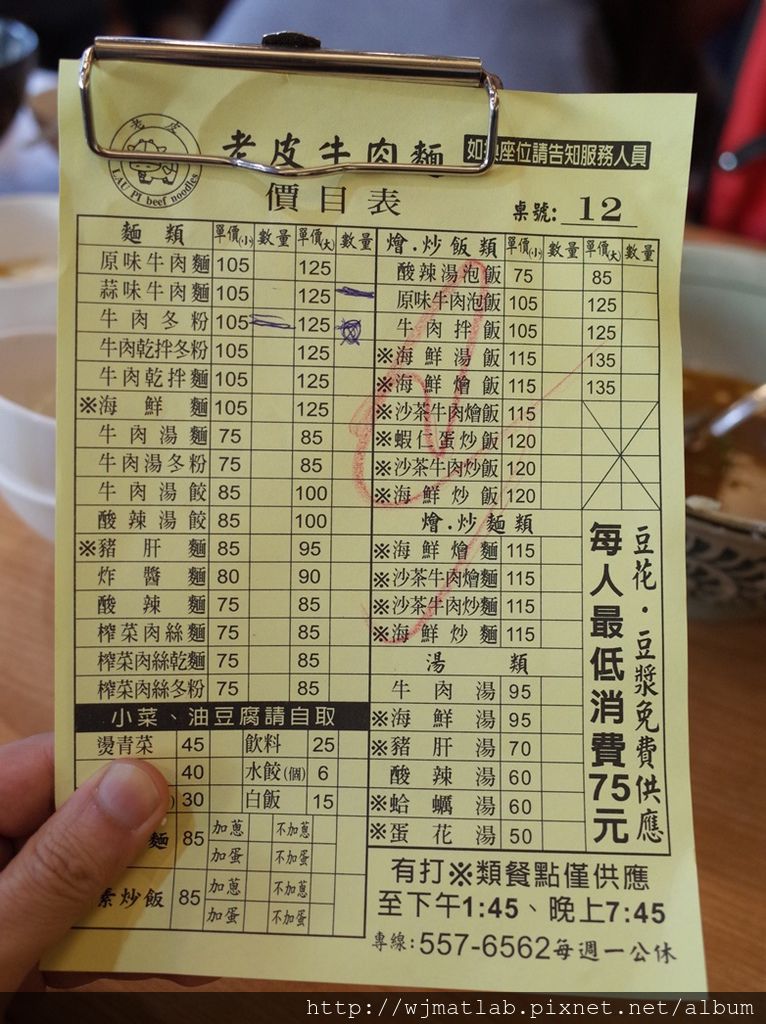 老皮
LAU PI beef noodles
老皮牛肉麵
如 座位請告知服務人員
價目表
桌號: 12
麵類 單價(小) 數量 單價(大) 數量
原味牛肉麵 105 125
蒜味牛肉麵 105 125
牛肉冬粉 105 125
牛肉乾拌冬粉 105 125
牛肉乾拌麵 105 125
※海鮮麵 105 125
牛肉湯麵 75 85
牛肉湯冬粉 75 85
牛肉湯餃 85 100
酸辣湯餃 85 100
※豬肝麵 85 95
炸醬麵 80 90
酸辣麵 75 85
榨菜肉絲麵 75 85
榨菜肉絲乾麵 75 85
榨菜肉絲冬粉 75 85
小菜、油豆腐請自取
燙青菜 45 飲料 25
40 水餃(個) 6
30 白飯 15
麵 85 加蔥 不加蔥
加蛋 不加蛋
素炒飯 85 加蔥 不加蔥
加蛋 不加蛋
燴.炒飯類 單價(小) 數量 單價(大) 數量
酸辣湯泡飯 75 85
原味牛肉泡飯 105 125
牛肉拌飯 105 125
※海鮮湯飯 115 135
※海鮮燴飯 115 135
※沙茶牛肉燴飯 115
※蝦仁蛋炒飯 120
※沙茶牛肉炒飯 120
※海鮮炒飯 120
燴.炒麵類
※海鮮燴麵 115
※沙茶牛肉燴麵 115
※沙茶牛肉炒麵 115
※海鮮炒麵 115
湯類
牛肉湯 95
※海鮮湯 95
※豬肝湯 70
酸辣湯 60
※蛤蠣湯 60
※蛋花湯 50
豆花.豆漿免費供應
每人最低消費75元
有打※類餐點僅供應
至下午1:45、晚上7:45
專線:557-6562每週一公休
http://wjmatlab.pixnet.net/album